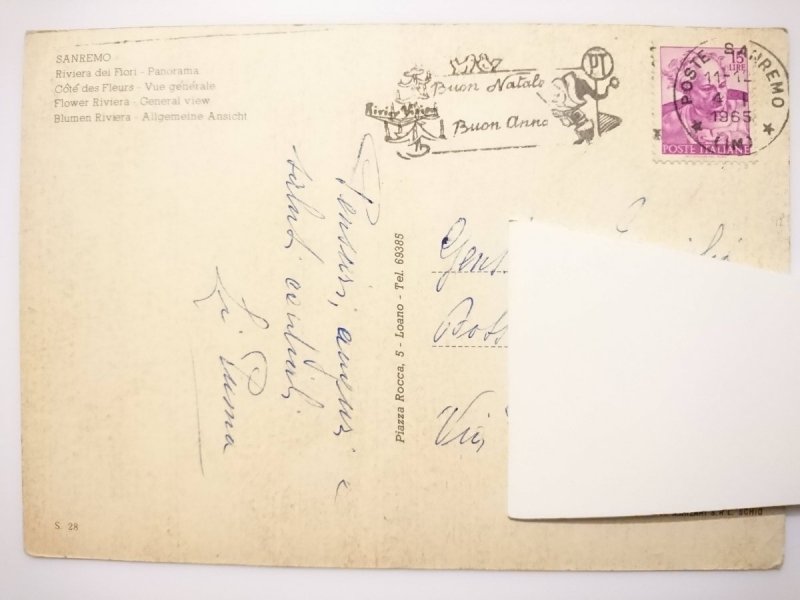 SANREMO
Riviera dei Fiori - Panorama
Côté des Fleurs - Vue générale
Flower Riviera - General view
Blumen Riviera - Allgemeine Ansicht
Buon Natale
Buon Anno
PT
15
LIRE
POSTE SANREMO
1965
(IM)
POSTE ITALIANE
Pensieri, auguri e
saluti cordiali
Li Puma
Piazza Rocca, 5 - Loano - Tel. 69385
Gent
Via
S. 28
S.R.L. SCHIO